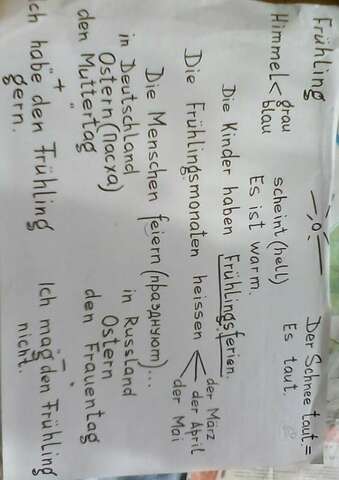 Frühling
Himmel < grau
blau
scheint (hell)
Es ist warm.
Der Schnee taut. =
Es taut.
Die Kinder haben Frühlingsferien.
Die Frühlingsmonaten heissen
der März
der April
der Mai
Die Menschen feiern (празднуют)...
in Deutschland
Ostern (Пасха)
den Muttertag
in Russland
Ostern
den Frauentag
+
Ich habe den Frühling
gern.
–
Ich mag den Frühling
nicht.